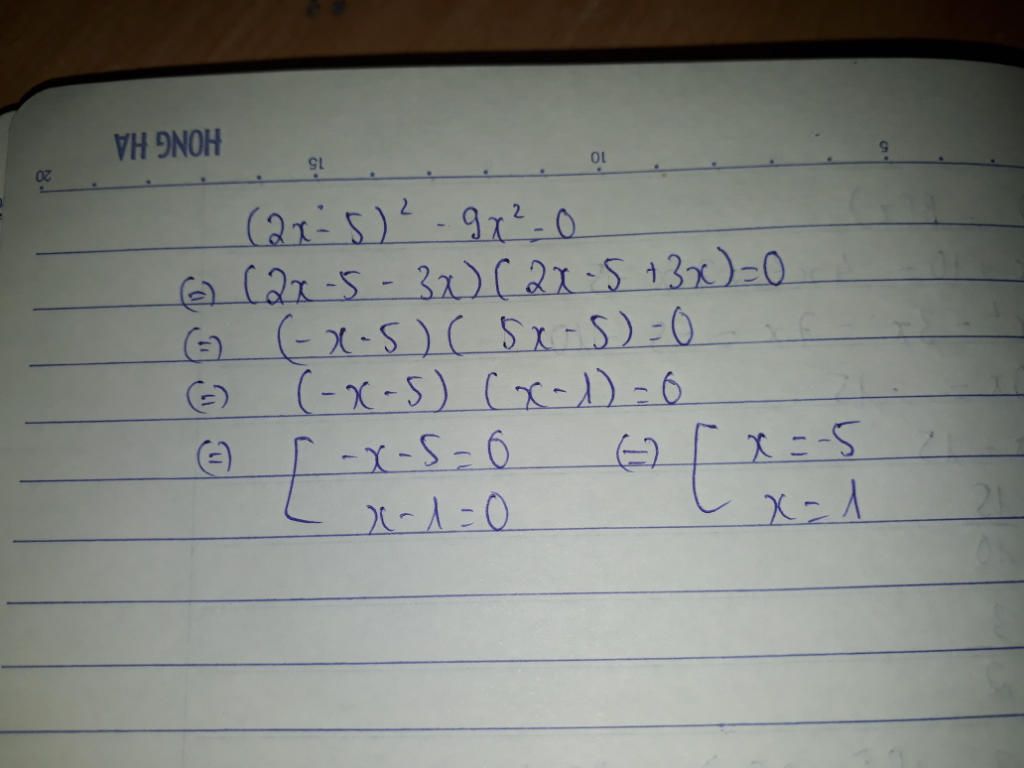 HONG HA
20 15 10 5
(2x-5)² - 9x² = 0
(=) (2x-5 - 3x)(2x-5+3x)=0
(=) (-x-5)(5x-5)=0
(=) (-x-5) (x-1)=0
(=) [ -x-5=0 (=) [ x=-5
x-1=0 x=1